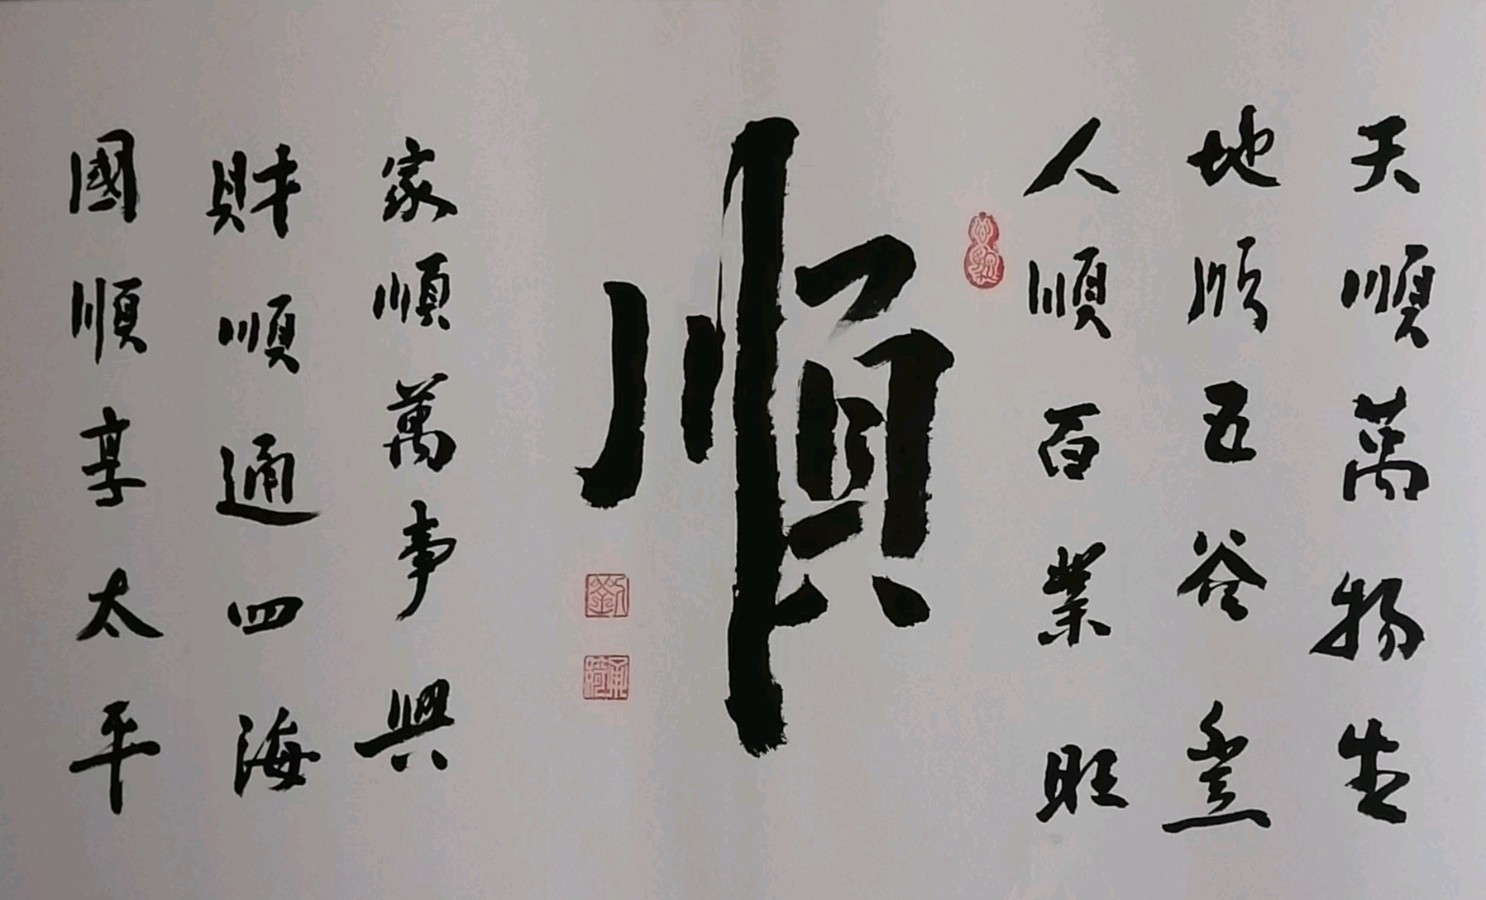 天順萬物生
地順五谷登
人順百業旺
順
家順萬事興
財順通四海
國順享太平
劉